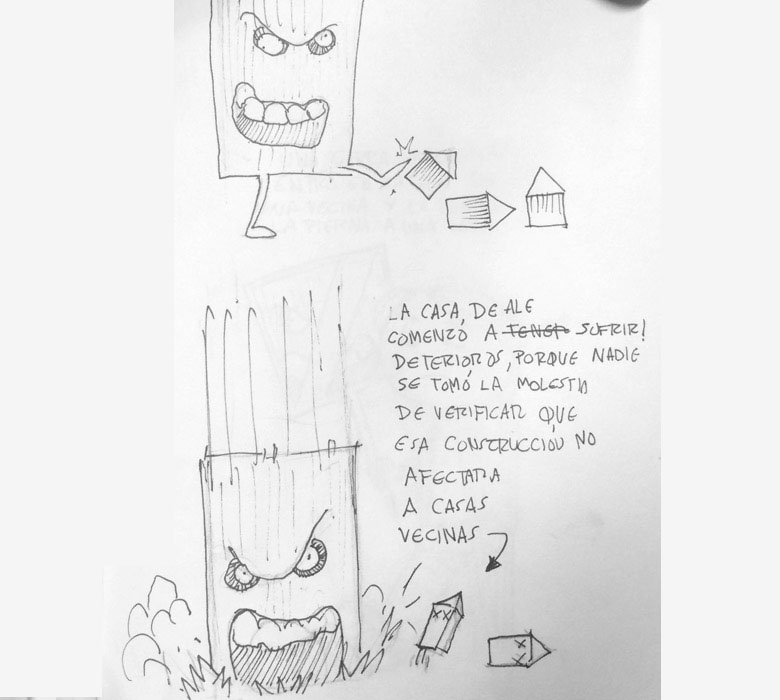 LA CASA, DE ALE
COMENZÓ A TENER SUFRIR!
DETERIOROS, PORQUE NADIE
SE TOMÓ LA MOLESTIA
DE VERIFICAR QUE
ESA CONSTRUCCIÓN NO
AFECTARA
A CASAS
VECINAS